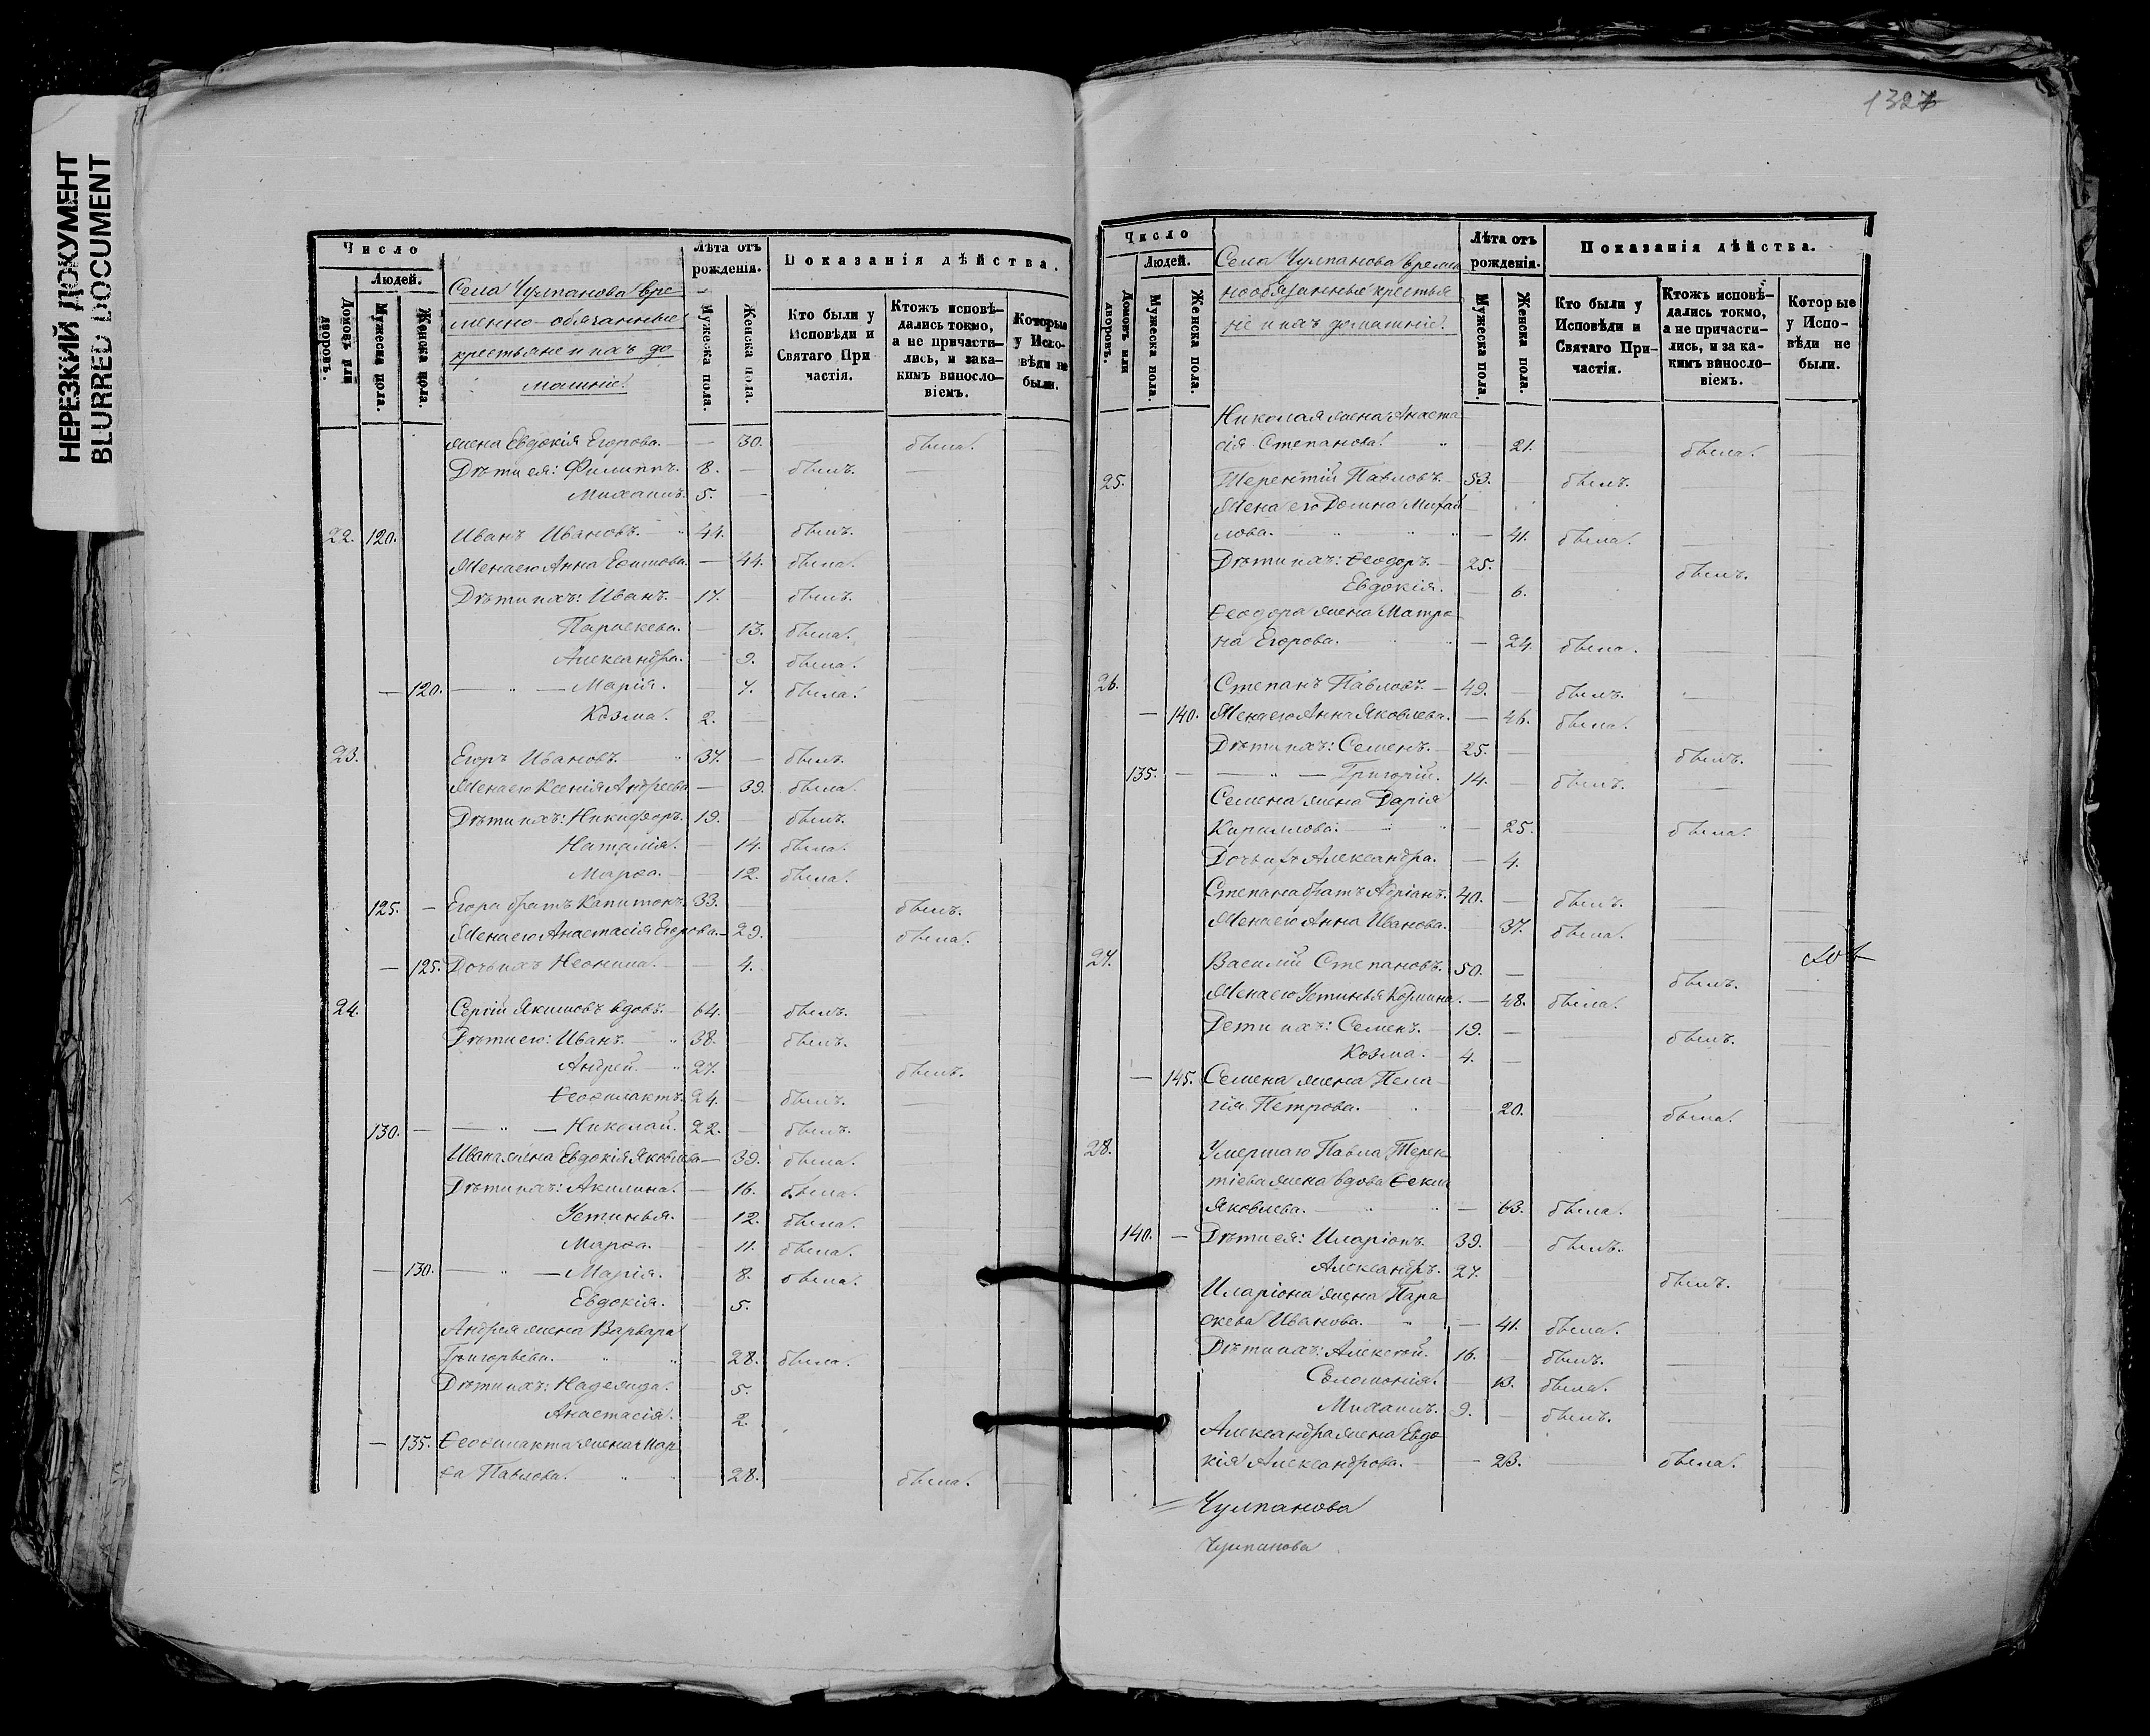 НЕРЕЗКИЙ ДОКУМЕНТ
BLURRED DOCUMENT
Число
Людей.
Домовъ или дворовъ.
Мужеска пола.
Женска пола.
Села Чулпанова вре
менно-обязанные
крестьяне и ихъ до
машніе.
Лѣта отъ рожденія.
Мужеска пола.
Женска пола.
Показанія дѣйства.
Кто были у Исповѣди и Святаго При частія.
Ктожъ исповѣ-дались токмо, а не причасти-лись, и зака-кимъ винословіемъ.
Которые у Испо-вѣди не были.
жена Евдокія Егорова. — — 30. была.
Дѣти ея: Филиппъ. 8. — былъ.
Михаилъ. 5. —
22. 120. Иванъ Ивановъ. — 44. былъ.
Жена его Анна Ефимова. — 44. была.
Дѣти ихъ: Иванъ. 17. былъ.
Параскева. — 13. была.
Александра. — 9. была.
— 120. — " — Марія. — 7. была.
Козма. 2. —
23. Егоръ Ивановъ. 37. — былъ.
Жена его Ксенія Андреева — 39. была.
Дѣти ихъ: Никифоръ. 19. былъ.
Наталія. — 14. была.
Марѳа. — 12. была.
125. — Егора братъ Капитонъ. 33. былъ.
Жена его Анастасія Егорова. — 29. была.
— 125. Дочь ихъ Неонила. — 4.
24. Сергій Якимовъ вдовъ. — 64. былъ.
Дѣти его: Иванъ. 38. былъ.
Андрей. — 27. былъ.
Ѳеофилактъ. 24. былъ.
130. — — " — Николай. 22. былъ.
Ивана жена Евдокія Яковлева — 39. была.
Дѣти ихъ: Акилина. — 16. была.
Устинья. — 12. была.
Марѳа. — 11. была.
— 130. — " — Марія. 8. была.
Евдокія. 5.
Андрея жена Варвара
Григорьева. " " 28. была.
Дѣти ихъ: Надежда. — 5.
Анастасія. — 2.
— 135. Ѳеофилакта жена Мар
ѳа Павлова. " 28. была.
1327
Число
Людей.
Домовъ или дворовъ.
Мужеска пола.
Женска пола.
Села Чулпанова времен
нообязанные крестья
не и ихъ домашніе.
Лѣта отъ рожденія.
Мужеска пола.
Женска пола.
Показанія дѣйства.
Кто были у Исповѣди и Святаго При-частія.
Ктожъ исповѣ-дались токмо, а не причасти-лись, и за ка-кимъ винословіемъ.
Которые у Испо-вѣди не были.
Николая жена Анаста
сія Степанова. " — 21. — была.
25. Терентій Павловъ. 53. — былъ.
Жена его Домна Михай
лова. — " " — 41. была.
Дѣти ихъ: Ѳеодоръ. — 25. былъ.
Евдокія. — 6.
Ѳеодора жена Матро
на Егорова. — 24. была.
26. Степанъ Павловъ. — 49. — былъ.
— 140. Жена его Анна Яковлева. — 46. была.
Дѣти ихъ: Семенъ. — 25. — былъ.
135. — — " — Григорій. 14. былъ.
Семена жена Дарія
Кириллова. " " — 25. была.
Дочь ихъ Александра. — 4.
Степана братъ Адріанъ. 40. — былъ.
Жена его Анна Иванова. 37. была.
27. Василій Степановъ. 50. — былъ.
Жена его Устинья Кузмина. — 48. была.
Дети ихъ: Семенъ. 19. — былъ.
Козма. — 4. —
— 145. Семена жена Пела
гія Петрова. — 20. была.
28. Умершаго Павла Терен
тіева жена вдова Ѳекла
Яковлева. — 63. была.
140. — Дѣти ея: Иларіонъ. 39. былъ.
Александръ. 27. былъ.
Иларіона жена Пара
скева Иванова. — " — 41. была.
Дѣти ихъ: Алексѣй. 16. — былъ.
Соломонія. 13. была.
Михаилъ. 9. — былъ.
Александра жена Евдо
кія Александрова. — 23. — была.
Чулпанова
Чулпанова